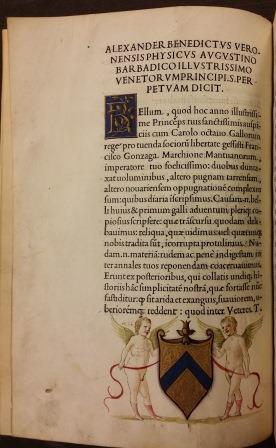 ALEXANDER BENEDICTVS VERO
NENSIS PHYSICVS AVGVSTINO
BARBADICO ILLVSTRISSIMO
VENETORVM PRINCIPI. S. PER
PETVAM DICIT.
BEllum, quod hoc anno illustrissi
me Princeps tuis sanctissimis auspi
ciis cum Carolo octauo Gallorum
rege pro tuenda sociorū libertate gessisti Fran
cisco Gonzaga. Marchione Mantuanorum,
imperatore tuo foelicissimo: duobus dunta
xat uoluminibus, altero pugnam tarrensem,
altero nouariensem oppugnationē complexi
sumus: quibus diaria scripsimus. Causam
huius & primum galli aduentum, plerique co
piosius scripsere: quae
bauimus: reliqua, quae uidimus: uel quae a no
bis tradita sūt, incorrupta protulimus.
dam. n. materiā: rudem ac pene indigestam, in
ter annales tuos reponendam exaceruauimus.
Erunt ex posterioribus, qui collatis undiq. hi
storiis hāc simplicitatē nostrā, quae fortasse nūc
fastiditur, & sit arida et exanguis, suauiorem, u
berioremq. reddent: quod inter Veteres. T.